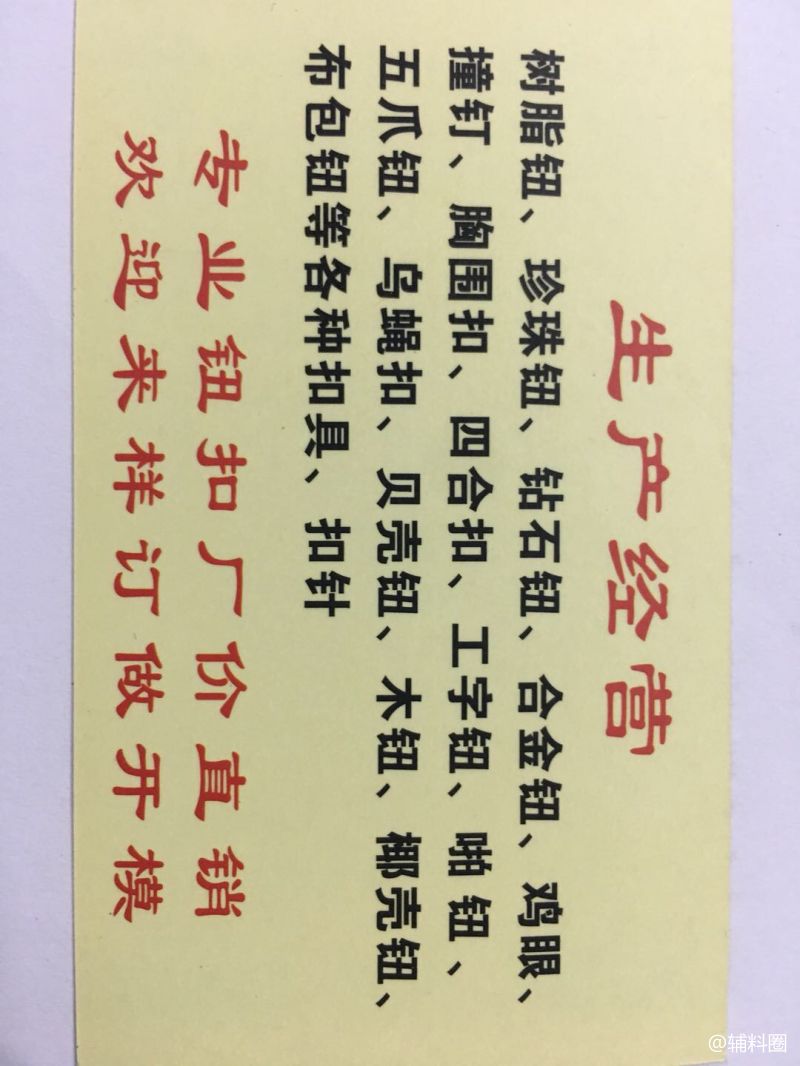 生产经营
树脂钮、珍珠钮、钻石钮、合金钮、鸡眼、
撞钉、胸围扣、四合扣、工字钮、啪钮、
五爪钮、乌蝇扣、贝壳钮、木钮、椰壳钮、
布包钮等各种扣具、扣针
专业钮扣厂价直销
欢迎来样订做开模
@辅料圈